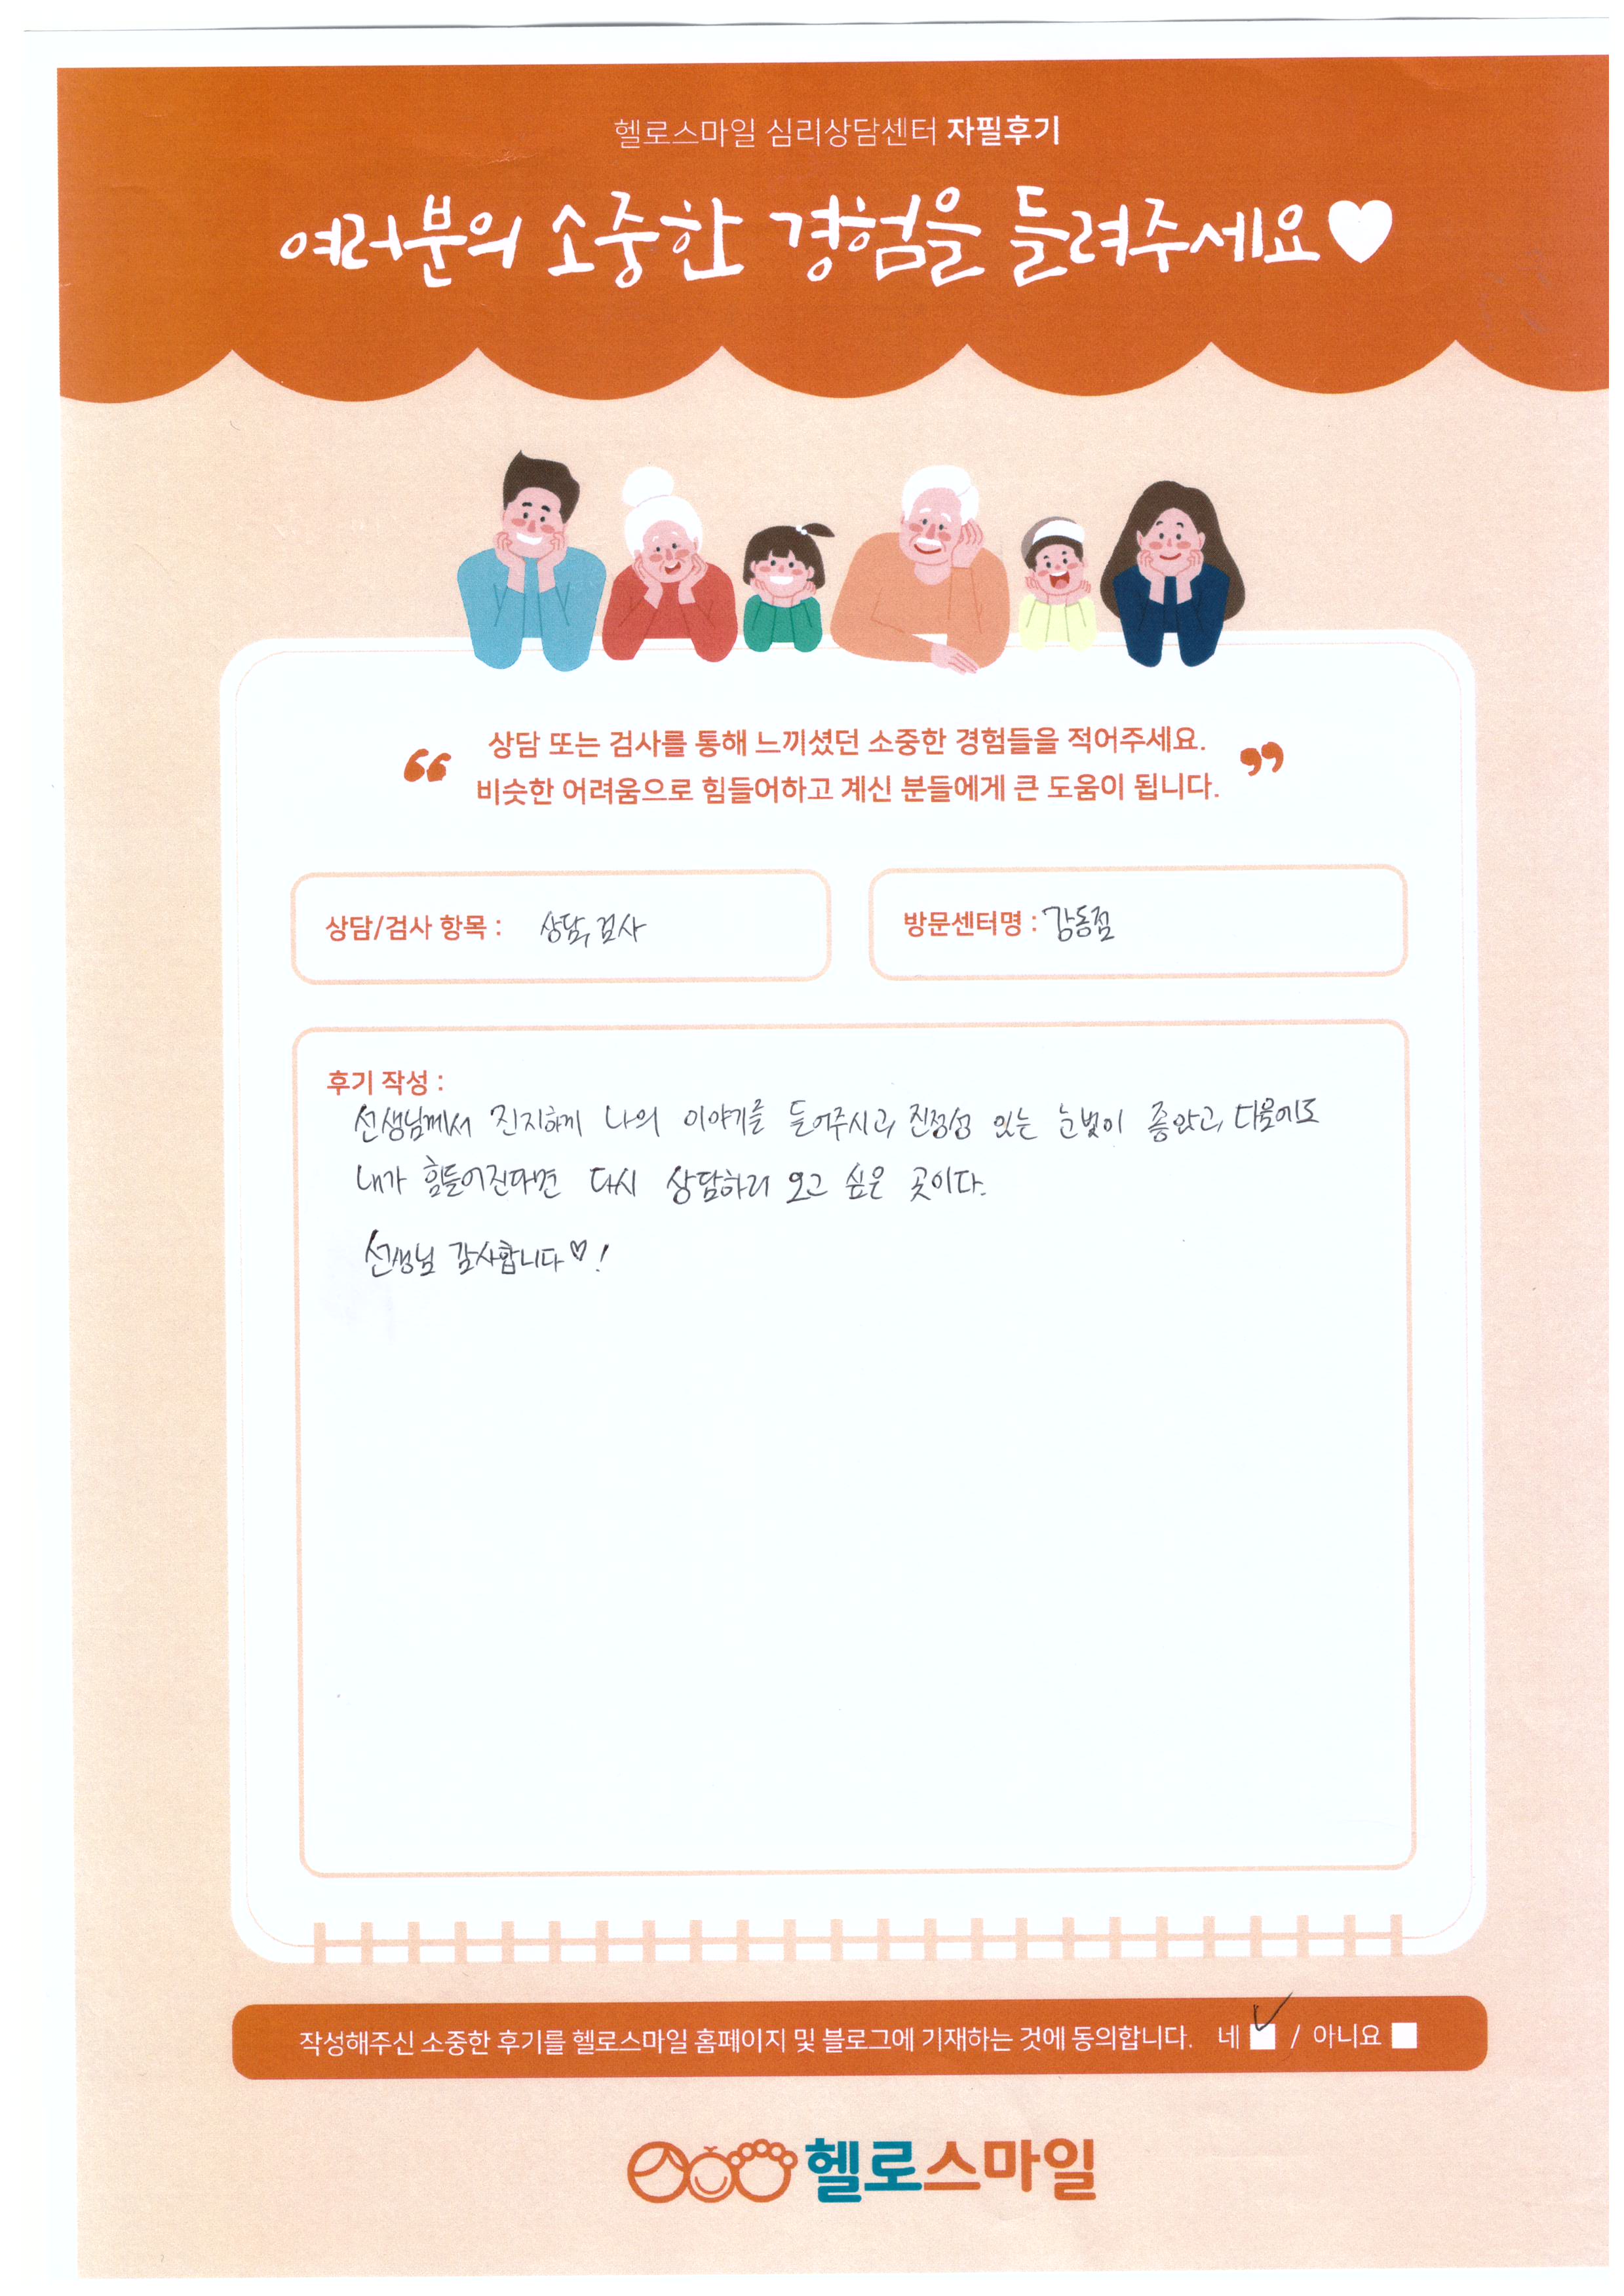 헬로스마일 심리상담센터 자필후기
여러분의 소중한 경험을 들려주세요♥
“ 상담 또는 검사를 통해 느끼셨던 소중한 경험들을 적어주세요. ”
비슷한 어려움으로 힘들어하고 계신 분들에게 큰 도움이 됩니다.
상담/검사 항목 : 상담, 검사
방문센터명 : 강동점
후기 작성 :
선생님께서 진지하게 나의 이야기를 들어주시고, 진정성 있는 눈빛이 좋았고, 다음에도
내가 힘들어진다면 다시 상담하러 오고 싶은 곳이다.
선생님 감사합니다♡!
작성해주신 소중한 후기를 헬로스마일 홈페이지 및 블로그에 기재하는 것에 동의합니다. 네 ✓ / 아니요
헬로스마일